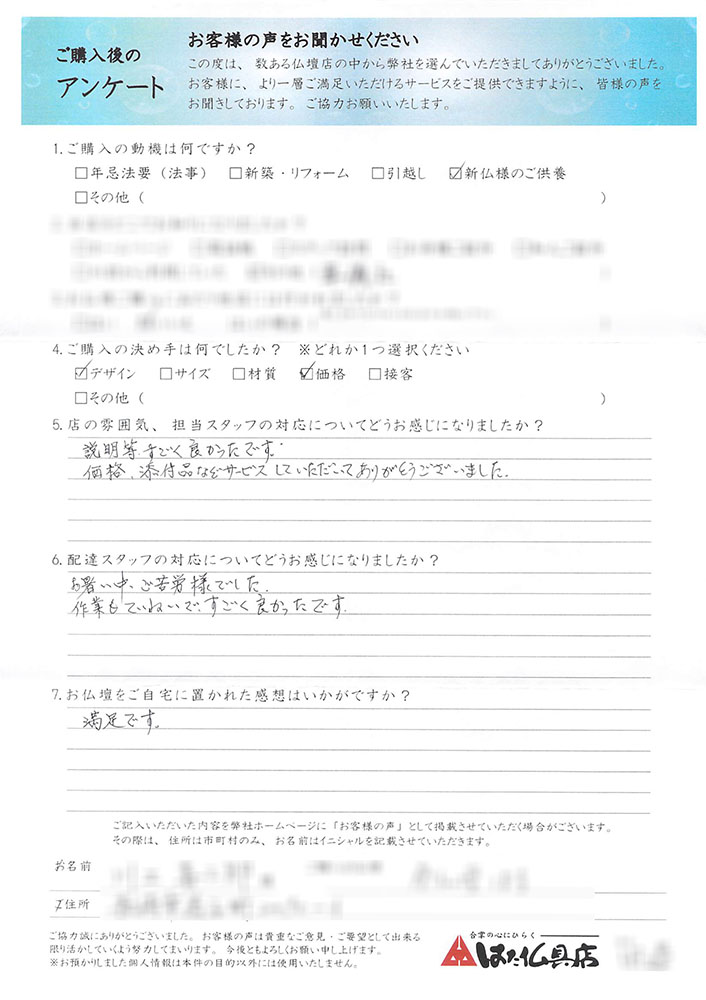 ご購入後の
アンケート
お客様の声をお聞かせください
この度は、数ある仏壇店の中から弊社を選んでいただきましてありがとうございました。
お客様に、より一層ご満足いただけるサービスをご提供できますように、皆様の声を
お聞きしております。ご協力お願いいたします。
1.ご購入の動機は何ですか？
□年忌法要（法事） □新築・リフォーム □引越し ☑新仏様のご供養
□その他（ ）
4.ご購入の決め手は何でしたか？ ※どれか1つ選択ください
☑デザイン □サイズ □材質 ☑価格 □接客
□その他（ ）
5.店の雰囲気、担当スタッフの対応についてどうお感じになりましたか？
説明等すごく良かったです。
価格、添付品などサービスしていただいてありがとうございました。
6.配達スタッフの対応についてどうお感じになりましたか？
お暑い中、ご苦労様でした。
作業もていねいで、すごく良かったです。
7.お仏壇をご自宅に置かれた感想はいかがですか？
満足です。
ご記入いただいた内容を弊社ホームページに「お客様の声」として掲載させていただく場合がございます。
その際は、住所は市町村のみ、お名前はイニシャルを記載させていただきます。
お名前
ご住所
ご協力誠にありがとうございました。お客様の声は貴重なご意見・ご要望として出来る
限り活かしていくよう努力してまいります。今後ともよろしくお願い申し上げます。
※お預かりしました個人情報は本件の目的以外には使用いたしません。
合掌の心にひらく
はた仏具店